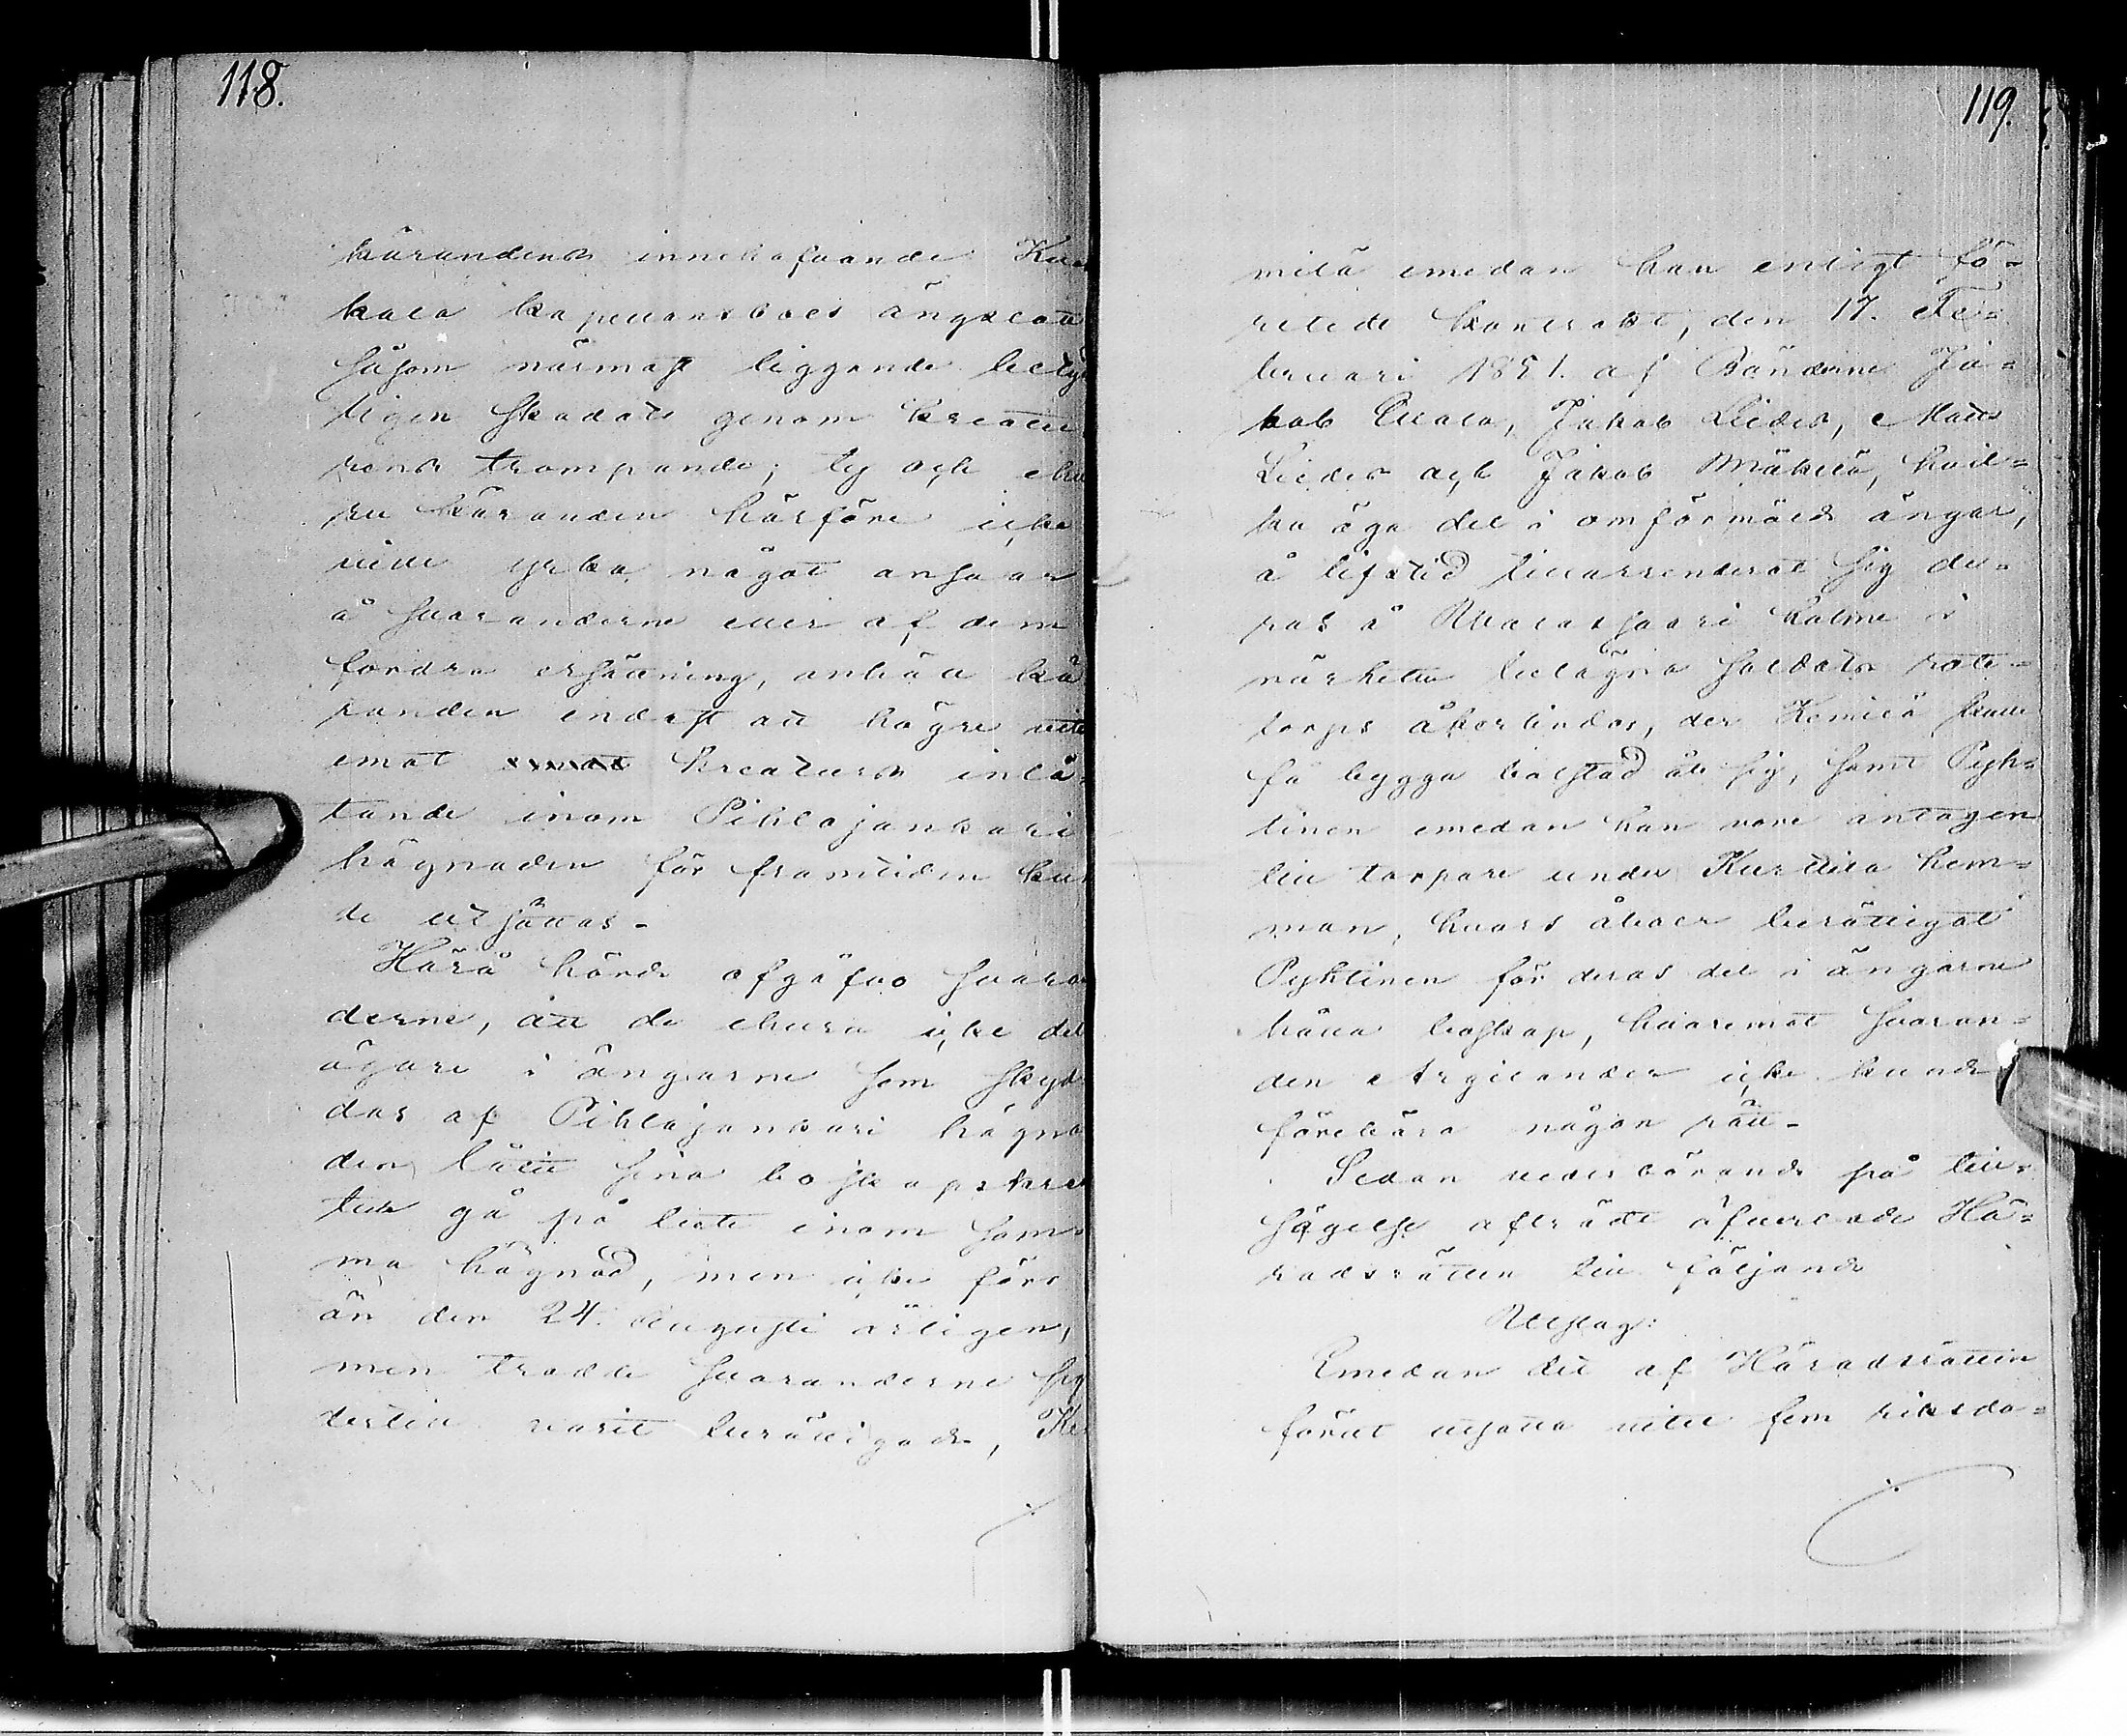 118.
kärandens innehafvande
kala kapellansbols ängslott
såsom närmast liggande betyd
ligen skadats genom kreatu
rens trampande; ty och ehu
ru käranden härföre icke
ville yrka något ansvar
å svaranderne eller af dem
fordra ersättning, anhöll kä
randen endast att högre vite
emot kreaturs inlå
tande inom Pihlajankari
hägnaden för framtiden kun
de utsättas.
Härå hörde afgåfvo svaran
derne, att de ehuru icke del
ägare i ängarne som skyd
das af Pihlajankari hägna
den låtit sina boskapskrea
tur gå på bete inom sam
ma hägnad, men icke förr
än den 24. Augusti årligen,
men trodde svaranderne sig
dertill varit berättigade, Ke
119.
milä emedan han enligt fö-
retedt kontrakt, den 17. Fe-
bruari 1851. af Bönderne Ja-
kob Ellala, Jakob Leides, Matts
Leides och Jakob Mäkelä, hvil-
ka äga del i omförmälde ängar,
å lifstid tillarrenderat sig de-
ras å holme i
närheten belägna soldats rote-
torps åkerlindor, der Kemilä skulle
få bygga bolstad åt sig, samt Pyh-
tinen emedan han vore antagen
till torpare under Kurttila hem-
man, hvars åboer berättigat
Pyhtinen för deras del i ängarne
hålla boskap, hvaremot svaran-
den Argillander icke kunde
förebära någon rätt.
Sedan vederbörande på till-
sägelse afträdt öfverlade Hä-
radsrätten till följande
Utslag:
Emedan det af Häradsrätten
förut utsatta vitet fem riksda-